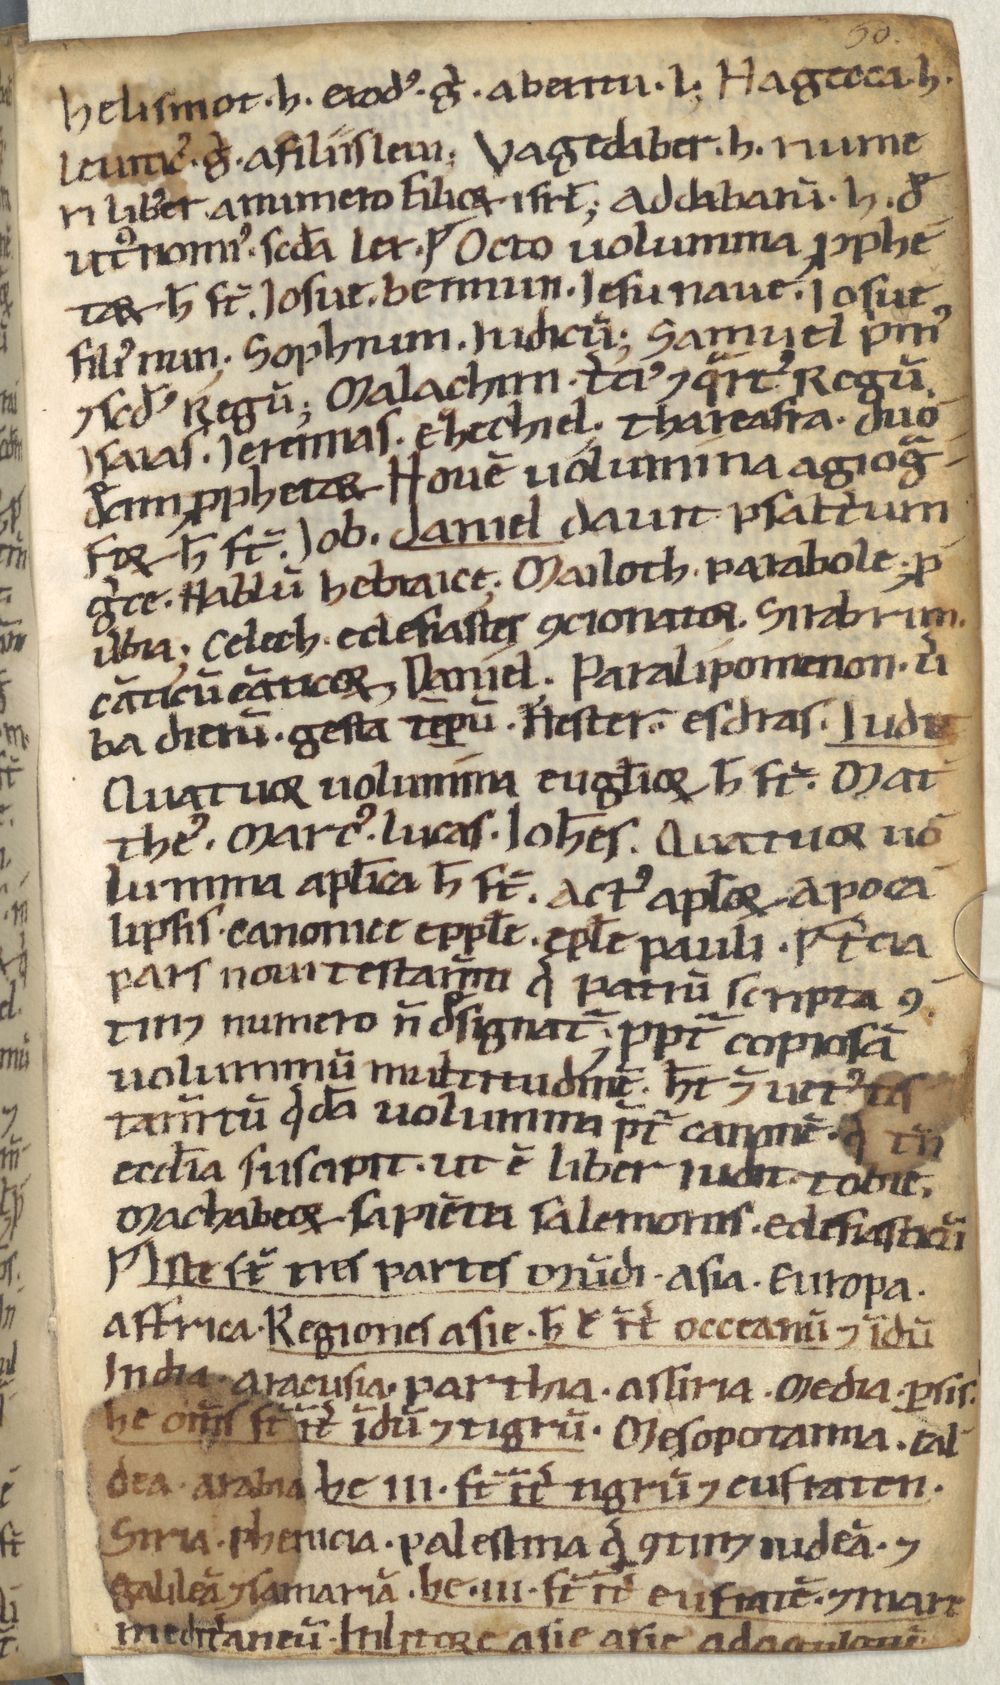 50.
helismot. h. exod᾽. g̃. abentru. l; Hageoca. h.
leuitic᾽. g̃. afiliis leui; Vagedaber. h. nume
ri liber. a numero filioꝝ isrl̄; addabarū. h. d̄
ut᾽onomi᾽. scd̄a lex. ꝑ Octo uolumina ꝓphe
taꝝ h̄ st̄. Iosue. bennun. Iesu naue. Iosue
fili᾽ nun; Sophnim. Iudicū; Samuel pm᾽
⁊ scd᾽ Regū; Malachim. t̄ci᾽ ⁊ q̄rt᾽ Regū.
Isaias. Ieremias. ehechiel. thareasra. duo
dcim ꝓphetaꝝ Noue uolumina agiog̃
foꝝ h̄ st̄. Iob. daniel dauit psalt̄ium
g̃ce. Nablū hebraice; Masloth. parabole. ꝓ
ūbia; Celeth. eclesiastes ꝯcionatoꝝ. Sirabrim.
cāticū cāticoꝝ Daniel. Paralipomenon. ū
ba dierū. gesta tēpū. Hester. esdras. Iudit
Quatuoꝝ uolumina eugl̄ioꝝ h̄ st̄. Mat
the᾽. Marc᾽. lucas. Ioh̄es. Quatuoꝝ uo
lumina apl̄ica h̄ st̄. act᾽ apl̄oꝝ. apoca
lipsis. canonice epple. epl̄e pauli. ꝑ T̄cia
pars noui testam̄ti q̄ patrū scripta ꝯ
tin⁊ numero n̄ d̄signat᷑; ppt̄ copiosā
uoluminū multitudinē. h̄t ⁊ uet᾽ tes
tam̄tū q̄dā uolumina p̄t canonē. q̄ tn̄
eccl̄ia suscipit. ut ē liber iudit. tobie.
Machabeoꝝ sapiētia salemonis. eclesiasticū
ꝑ Iste st̄ tres partes mūdi. asia. Europa.
affrica. Regiones asie. h̄ ē int̄ occeanū ⁊ īdū
India. aracusia. parthia. assiria. Media. ꝑsis.
he om̄s st̄ int̄ īdū ⁊ tigrū. Mesopotamia. cal
dea. arabia he III. st̄ int̄ tigrū ⁊ eufraten.
Siria. phenicia. palestina q̄ ꝯtin⁊ iudeā. ⁊
galileā ⁊ samariā. he. III. st̄ int̄ eufratē. ⁊ mare
medit̄raneū.